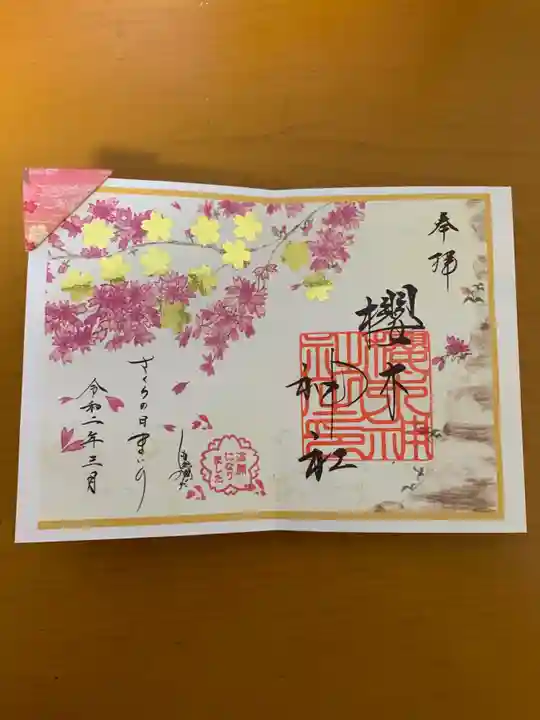 奉拝
櫻木
神社
さくらの日まいり
令和二年三月
満開
になり
ました